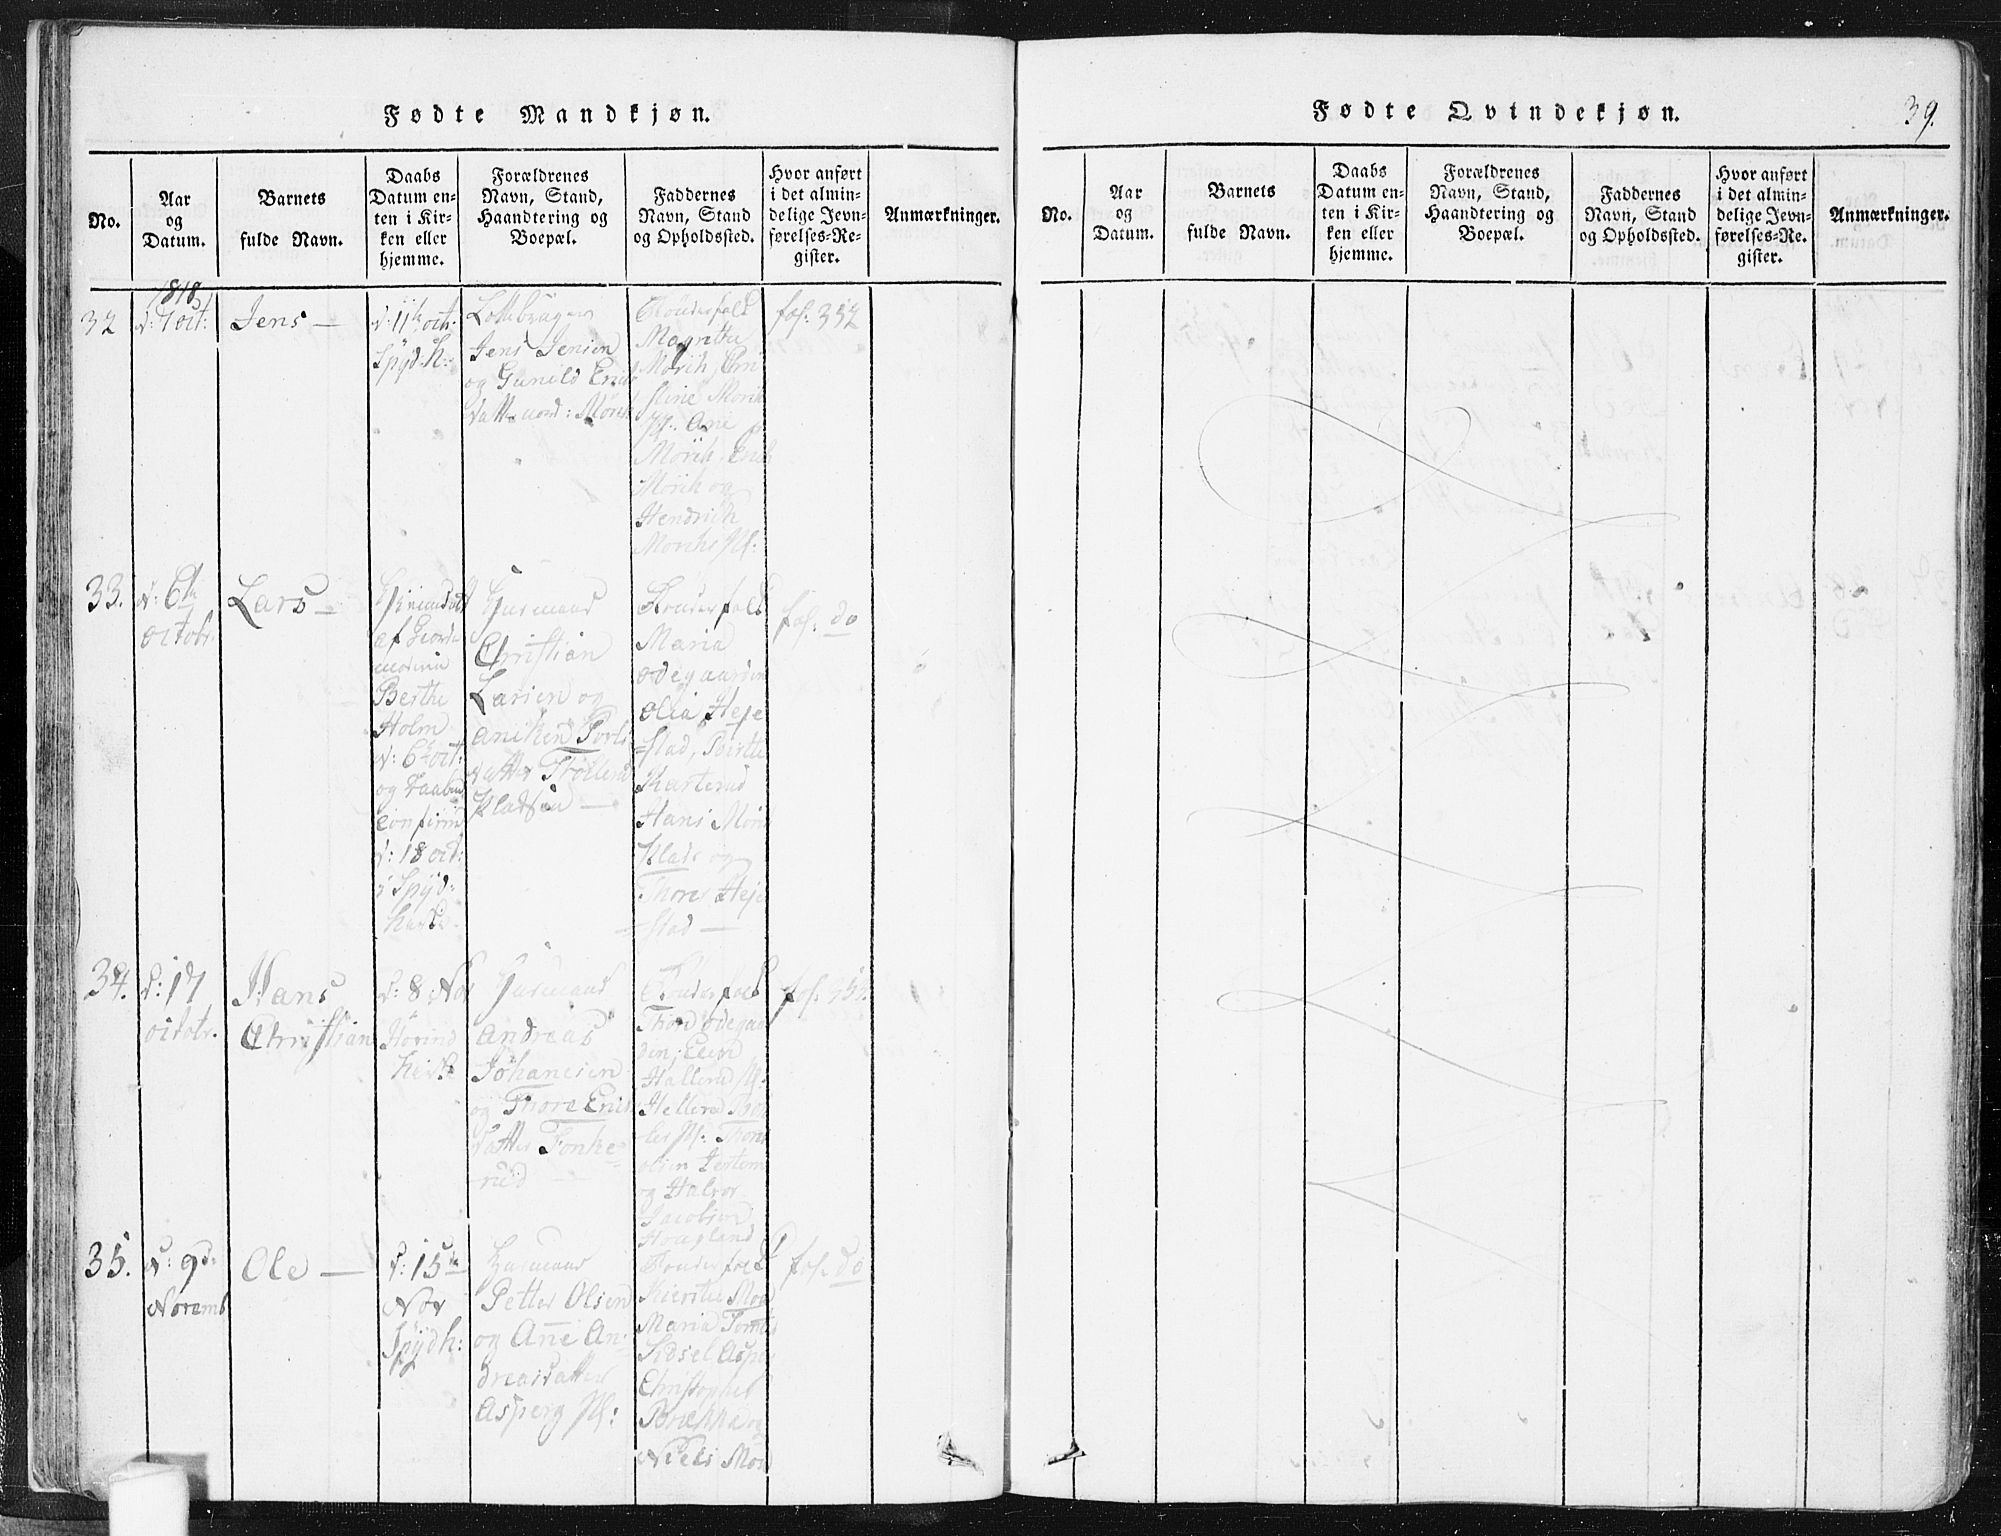 Fødte Mandkjøn.
No.
Aar
og
Datum.
Barnets
fulde Navn.
Daabs
Datum en-
ten i Kir-
ken eller
hjemme.
Forældrenes
Navn, Stand,
Haandtering og
Boepæl.
Faddernes
Navn, Stand
og Opholdssted.
Hvor anført
i det almin-
delige Jevn-
førelses-Re-
gister.
Anmærkninger.
32
1818
d: 7 oct:
Jens —
d: 11te oct.
Spyd. K:
Jens Jensen
og Gunild Erics
datter nord: Mørk
Fonderfolk
Magrethe
Mørch, Chri
stine Mørk
Pl. Ane
Mørch, Erich
Mørch og
Hendrich
Mørchs Pl:
fol: 352
33.
d: 6te
octobr.
Lars —
Hjemdøbt
af Giorde
moderen
Berthe
Holm
d: 6te oct:
og Daaben
confirm
d: 18 oct:
i Spyd-
Husmand
Christian
Larsen og
aniken Povls
datter
Pladsen —
Fonderfolk
Maria
odegaarden
olia Heje
-stad, Berthe
Karterud
Hans Mørk
Klads og
Thores Heje
-stad —
fol: do
34.
d: 17
octobr.
Hans
Christian
d: 8 Nov
Hovind
Kirke
Husmand
Andreas
Johanesen
og Thore Erics
datter Fonke-
rud —
Fonderfolk
Thore odegaa
den, Eline
Hallerud Pl:
Hellerud
Pl: Thore
olsen
og Halvor
Jacobsen
Hougland
35.
d: 9de
Novemb
Ole —
d: 15de
Nov
Spydh:
Husmand
Petter Olsen
og Anne An-
dreasdatter
Asperg Pl:
Fonderfolk
Kierstie Moe
Maria Tomter
Sidsel Asper
Christopher
Brække og
Niels Moe
fol: do
Fødte Qvindekjøn.
39.
No.
Aar
og
Datum.
Barnets
fulde Navn.
Daabs
Datum en-
ten i Kir-
ken eller
hjemme.
Forældrenes
Navn, Stand,
Haandtering og
Boepæl.
Faddernes
Navn, Stand
og Opholdssted.
Hvor anført
i det almin-
delige Jevn-
førelses-Re-
gister.
Anmærkninger.